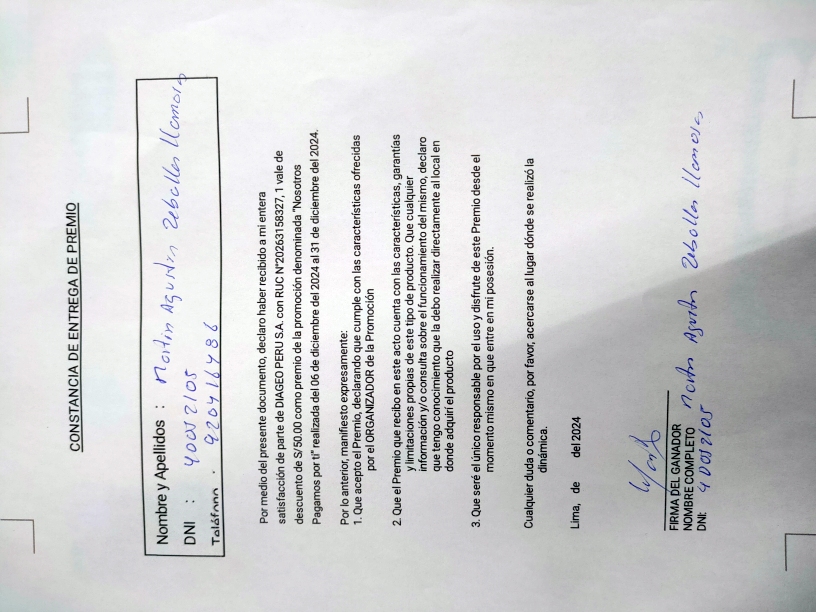 CONSTANCIA DE ENTREGA DE PREMIO
Nombre y Apellidos : Martin Agustin Zeballos Llamosa
DNI : 40052105
Teléfono : 920416486
Por medio del presente documento, declaro haber recibido a mi entera
satisfacción de parte de DIAGEO PERU S.A. con RUC N°20263158327, 1 vale de
descuento de S/50.00 como premio de la promoción denominada "Nosotros
Pagamos por ti" realizada del 06 de diciembre del 2024 al 31 de diciembre del 2024.
Por lo anterior, manifiesto expresamente:
1. Que acepto el Premio, declarando que cumple con las características ofrecidas
por el ORGANIZADOR de la Promoción
2. Que el Premio que recibo en este acto cuenta con las características, garantías
y limitaciones propias de este tipo de producto. Que cualquier
información y/o consulta sobre el funcionamiento del mismo, declaro
que tengo conocimiento que la debo realizar directamente al local en
donde adquirí el producto
3. Que seré el único responsable por el uso y disfrute de este Premio desde el
momento mismo en que entre en mi posesión.
Cualquier duda o comentario, por favor, acercarse al lugar dónde se realizó la
dinámica.
Lima, de del 2024
FIRMA DEL GANADOR
NOMBRE COMPLETO Martin Agustin Zeballos Llamosa
DNI: 40052105